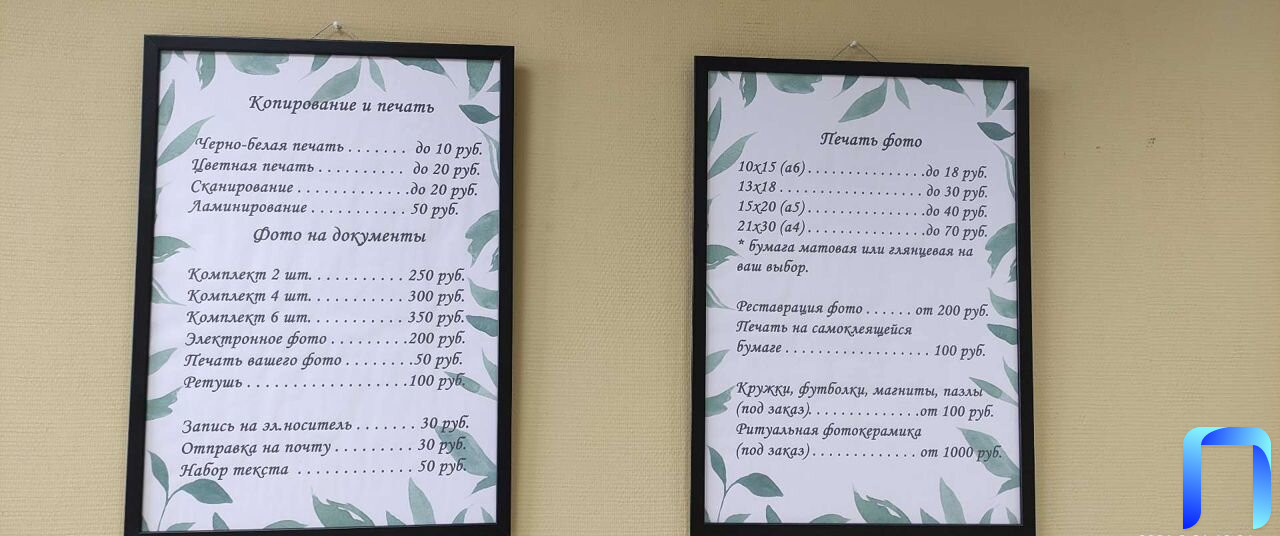 Копирование и печать
Черно-белая печать . . . . . . . до 10 руб.
Цветная печать . . . . . . . . . . до 20 руб.
Сканирование . . . . . . . . . . . . .до 20 руб.
Ламинирование . . . . . . . . . . . 50 руб.
Фото на документы
Комплект 2 шт. . . . . . . . . . . 250 руб.
Комплект 4 шт. . . . . . . . . . . 300 руб.
Комплект 6 шт. . . . . . . . . . . 350 руб.
Электронное фото . . . . . . . . .200 руб.
Печать вашего фото . . . . . . . .50 руб.
Ретушь . . . . . . . . . . . . . . . . . .100 руб.
Запись на эл.носитель . . . . . . . 30 руб.
Отправка на почту . . . . . . . . . 30 руб.
Набор текста . . . . . . . . . . . . . 50 руб.
Печать фото
10х15 (а6) . . . . . . . . . . . . . . .до 18 руб.
13х18 . . . . . . . . . . . . . . . . . . до 30 руб.
15х20 (а5) . . . . . . . . . . . . . . .до 40 руб.
21х30 (а4) . . . . . . . . . . . . . . .до 70 руб.
* бумага матовая или глянцевая на
ваш выбор.
Реставрация фото . . . . . . от 200 руб.
Печать на самоклеящейся
бумаге . . . . . . . . . . . . . . . . . . 100 руб.
Кружки, футболки, магниты, пазлы
(под заказ). . . . . . . . . . . . . .от 100 руб.
Ритуальная фотокерамика
(под заказ) . . . . . . . . . . . . . от 1000 руб.